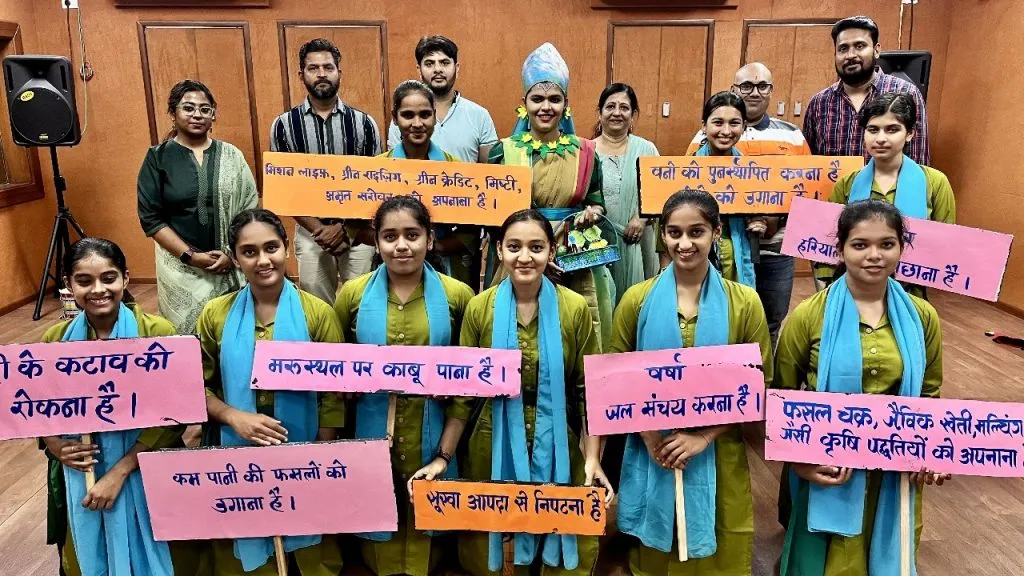 मिशन लाइफ, ग्रीन राइजिंग, ग्रीन क्रेडिट, मिष्टी,
अमृत सरोवर को अपनाना है।
वनों को पुनर्स्थापित करना है
को उगाना है।
हरिया
छाना है।
के कटाव को
रोकना है।
मरुस्थल पर काबू पाना है।
वर्षा
जल संचय करना है।
फसल चक्र, जैविक खेती, मल्चिंग
जैसी कृषि पद्धतियों को अपनाना है
कम पानी की फसलों को
उगाना है।
सूखा आपदा से निपटना है